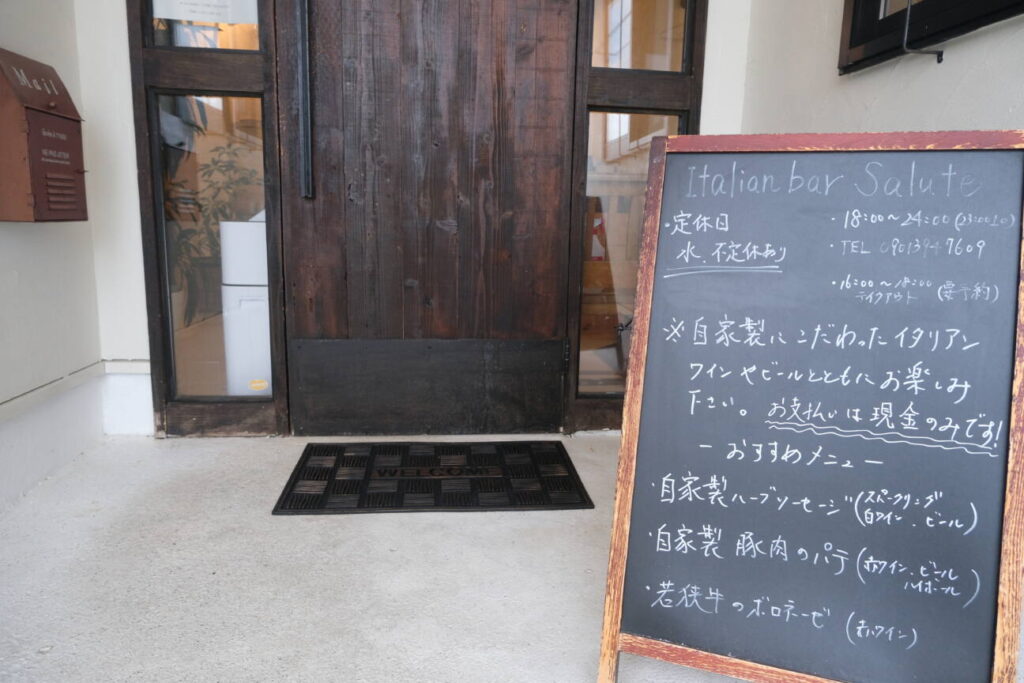 Mail
WELCOME
Italian bar Salute
・定休日
水、不定休あり
・18:00〜24:00 (23:00 LO)
・TEL 0901394 7609
・16:00〜18:00
テイクアウト (要予約)
※自家製にこだわったイタリアン
ワインやビールとともにお楽しみ
下さい。お支払いは現金のみです!
ー おすすめメニュー ー
・自家製ハーブソーセージ(スパークリング
白ワイン、ビール)
・自家製 豚肉のパテ(赤ワイン、ビール
ハイボール)
・若狭牛のボロネーゼ (赤ワイン)